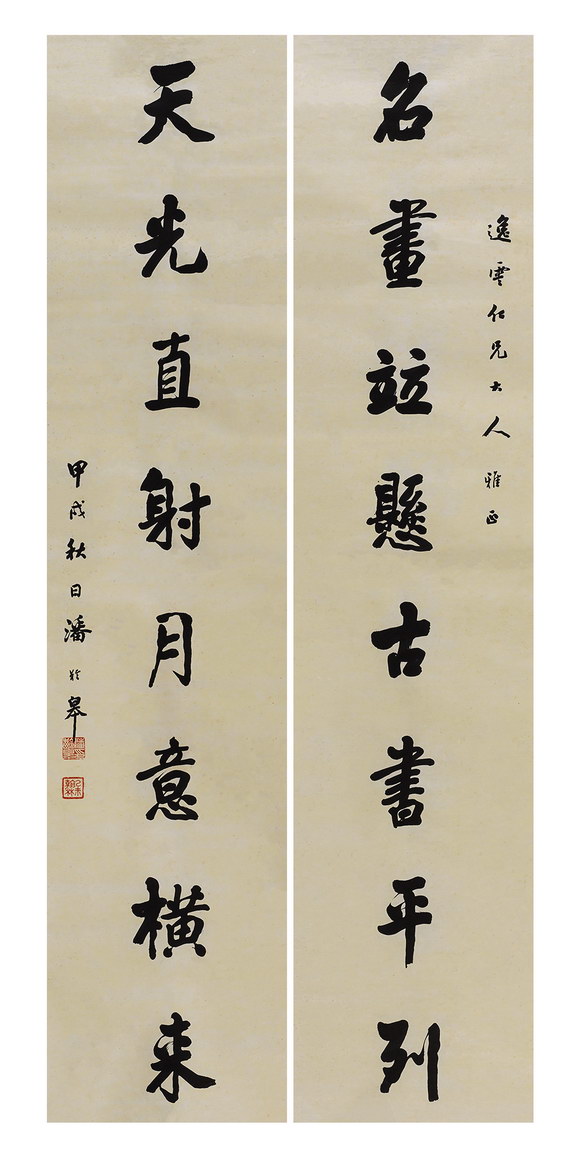 逸雲仁兄大人雅正
名畫竝懸古書平列
天光直射月意橫来
甲戌秋日潘於皋